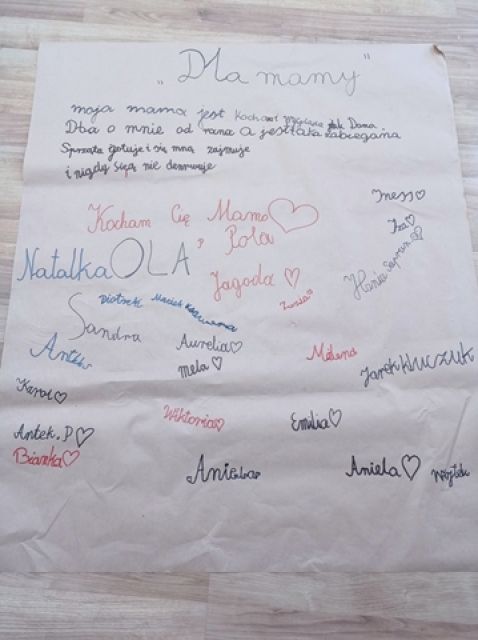 „Dla mamy”
moja mama jest Kochana wygląda jak Dama
Dba o mnie od rana a jest taka zabiegana
Sprząta gotuje i się mną zajmuje
i nigdy się nie denerwuje
Iness♡
Kocham Cię Mamo♡
Iza♡
Pola
Natalka OLA
Jagoda ♡
Hania
Zosia♡
Piotrek Maciek
Sandra
Aurelia♡
Antek
Mela♡
Milena
Jarek Kluczuk
Karol♡
Wiktoria♡
Emilia♡
Antek.P♡
Bianka♡
Aniela♡
Wojtek